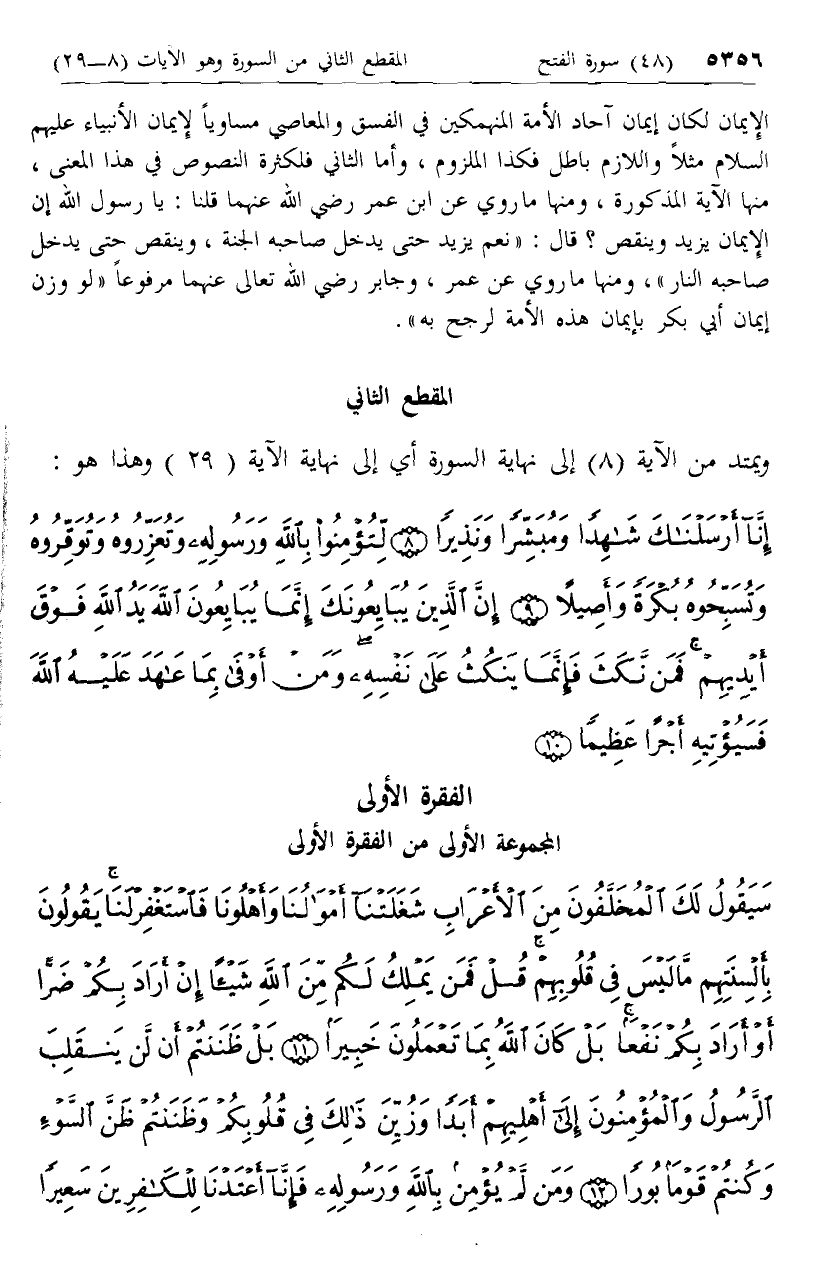 ٥٣٥٦ (٤٨) سورة الفتح المقطع الثاني من السورة وهو الآيات (٨–٢٩)
الإيمان لكان إيمان آحاد الأمة المنهمكين في الفسق والمعاصي مساوياً لإيمان الأنبياء عليهم
السلام مثلاً واللازم باطل فكذا الملزوم ، وأما الثاني فلكثرة النصوص في هذا المعنى ،
منها الآية المذكورة ، ومنها ماروي عن ابن عمر رضي الله عنهما قلنا : يا رسول الله إن
الإيمان يزيد وينقص ؟ قال : «نعم يزيد حتى يدخل صاحبه الجنة ، وينقص حتى يدخل
صاحبه النار» ، ومنها ماروي عن عمر ، وجابر رضي الله تعالى عنهما مرفوعاً «لو وزن
إيمان أبي بكر بإيمان هذه الأمة لرجح به» .
المقطع الثاني
ويمتد من الآية (٨) إلى نهاية السورة أي إلى نهاية الآية ( ٢٩ ) وهذا هو :
إِنَّآ أَرْسَلْنَـٰكَ شَـٰهِدًا وَمُبَشِّرًا وَنَذِيرًا ﴿٨﴾ لِّتُؤْمِنُوا۟ بِٱللَّهِ وَرَسُولِهِۦ وَتُعَزِّرُوهُ وَتُوَقِّرُوهُ
وَتُسَبِّحُوهُ بُكْرَةً وَأَصِيلًا ﴿٩﴾ إِنَّ ٱلَّذِينَ يُبَايِعُونَكَ إِنَّمَا يُبَايِعُونَ ٱللَّهَ يَدُ ٱللَّهِ فَوْقَ
أَيْدِيهِمْ ۚ فَمَن نَّكَثَ فَإِنَّمَا يَنكُثُ عَلَىٰ نَفْسِهِۦ ۖ وَمَنْ أَوْفَىٰ بِمَا عَـٰهَدَ عَلَيْهُ ٱللَّهَ
فَسَيُؤْتِيهِ أَجْرًا عَظِيمًا ﴿١٠﴾
الفقرة الأولى
المجموعة الأولى من الفقرة الأولى
سَيَقُولُ لَكَ ٱلْمُخَلَّفُونَ مِنَ ٱلْأَعْرَابِ شَغَلَتْنَآ أَمْوَٰلُنَا وَأَهْلُونَا فَٱسْتَغْفِرْ لَنَا ۚ يَقُولُونَ
بِأَلْسِنَتِهِم مَّا لَيْسَ فِى قُلُوبِهِمْ ۚ قُلْ فَمَن يَمْلِكُ لَكُم مِّنَ ٱللَّهِ شَيْـًٔا إِنْ أَرَادَ بِكُمْ ضَرًّا
أَوْ أَرَادَ بِكُمْ نَفْعًۢا ۚ بَلْ كَانَ ٱللَّهُ بِمَا تَعْمَلُونَ خَبِيرًۢا ﴿١١﴾ بَلْ ظَنَنتُمْ أَن لَّن يَنقَلِبَ
ٱلرَّسُولُ وَٱلْمُؤْمِنُونَ إِلَىٰٓ أَهْلِيهِمْ أَبَدًا وَزُيِّنَ ذَٰلِكَ فِى قُلُوبِكُمْ وَظَنَنتُمْ ظَنَّ ٱلسَّوْءِ
وَكُنتُمْ قَوْمًۢا بُورًا ﴿١٢﴾ وَمَن لَّمْ يُؤْمِنۢ بِٱللَّهِ وَرَسُولِهِۦ فَإِنَّآ أَعْتَدْنَا لِلْكَـٰفِرِينَ سَعِيرًا